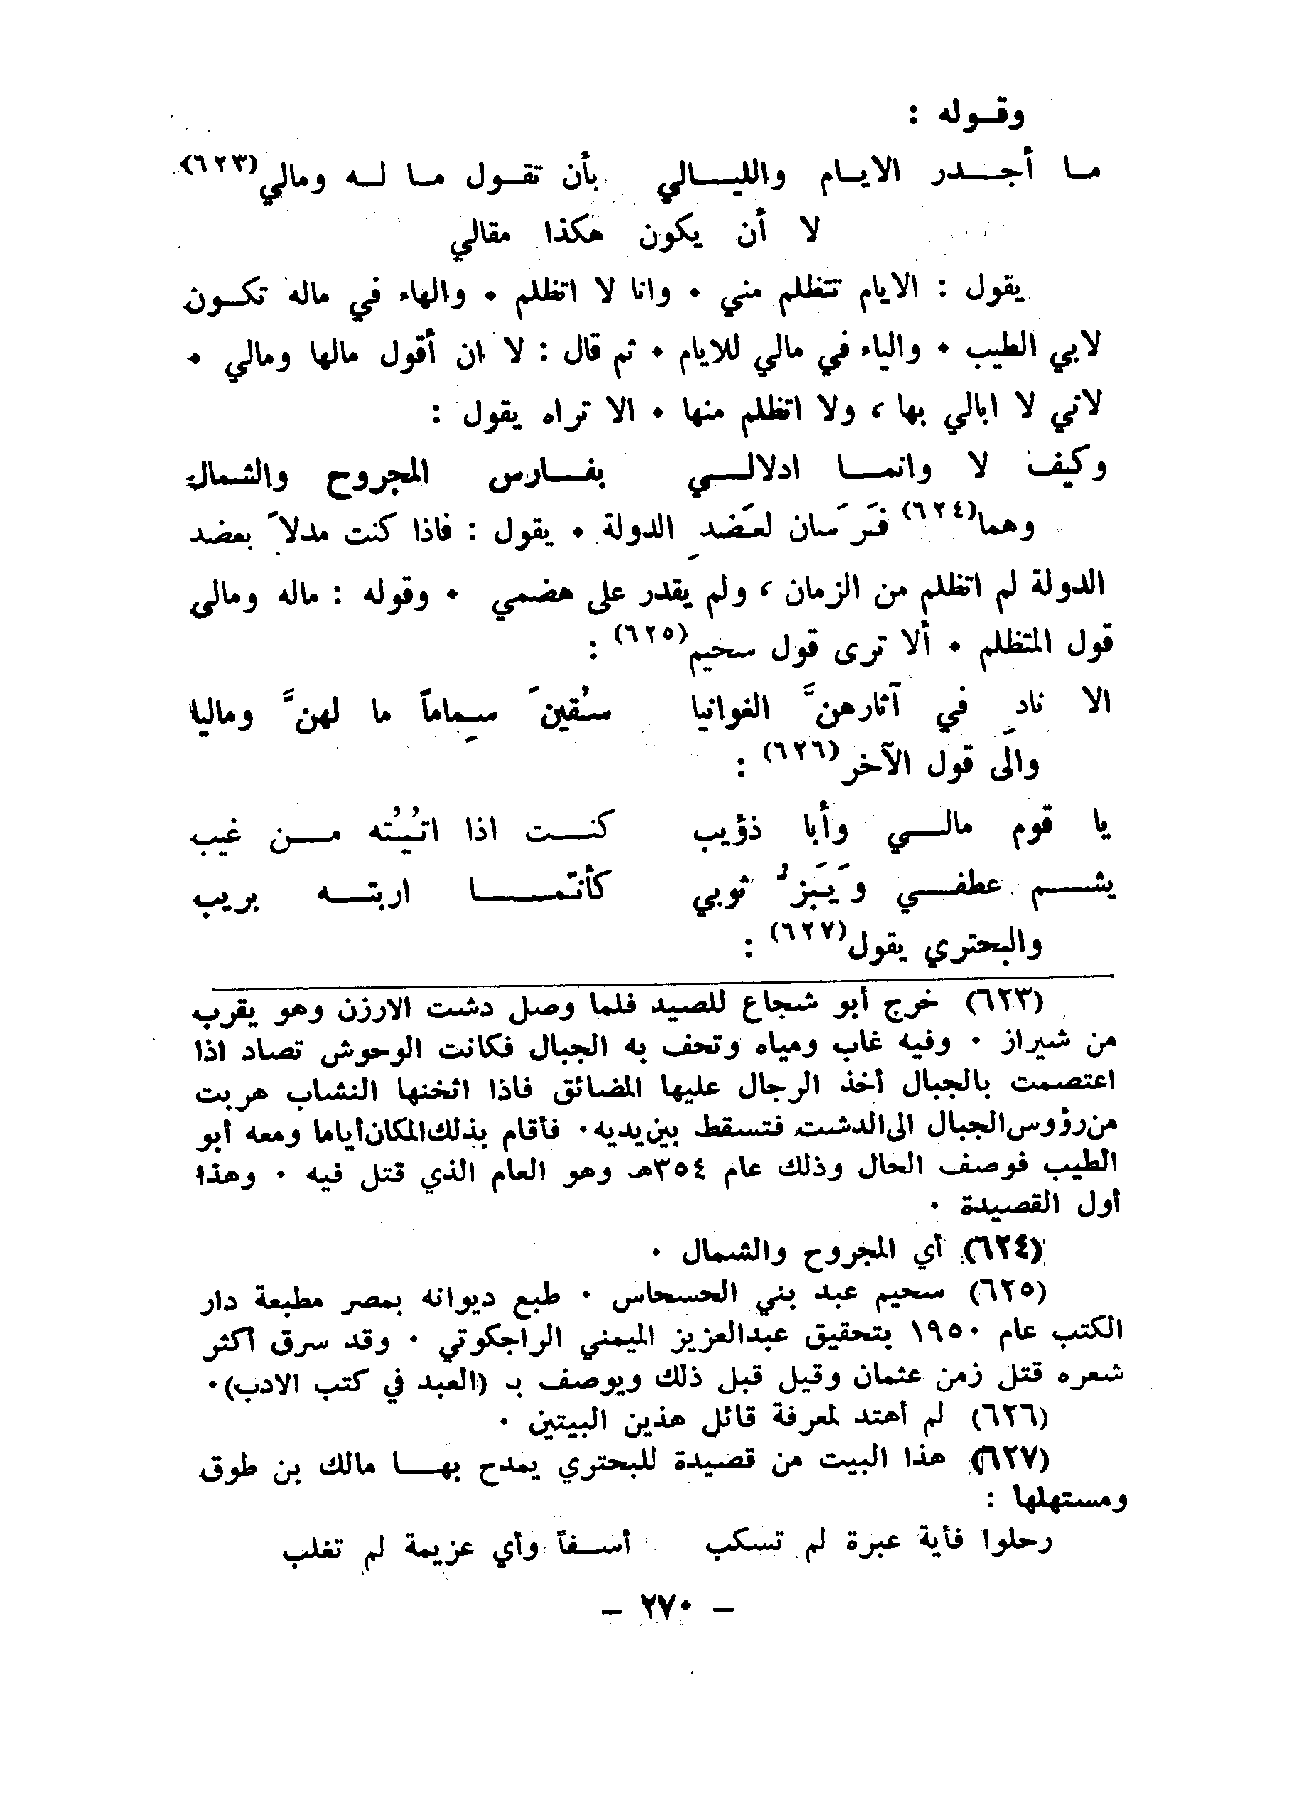 وقوله :
ما أجدر الايام والليالي بأن تقول ما له ومالي(٦٢٣)
لا أن يكون هكذا مقالي
يقول : الايام تتظلم مني ٠ وانا لا اتظلم ٠ والهاء في ماله تكون
لابي الطيب ٠ والياء في مالي للايام ٠ ثم قال : لا ان أقول مالها ومالي ٠
لاني لا ابالي بها ، ولا اتظلم منها ٠ الا تراه يقول :
وكيف لا وانما ادلالي بفارس المجروح والشمال
وهما(٦٢٤) فَرَسان لعَضدِ الدولة ٠ يقول : فاذا كنت مدلاً بعضد
الدولة لم اتظلم من الزمان ، ولم يقدر على هضمي ٠ وقوله : ماله ومالى
قول المتظلم ٠ ألا ترى قول سحيم(٦٢٥) :
الا نادِ في آثارهنَّ الغوانيا سُقينَ سِماماً ما لهنَّ وماليا
والى قول الآخر(٦٢٦) :
يا قوم مالي وأبا ذؤيب كنت اذا اتيْتُه من غيب
يشم عطفي وَيَبَزُّ ثوبي كأنّما اربته بريب
والبحتري يقول(٦٢٧) :
(٦٢٣) خرج أبو شجاع للصيد فلما وصل دشت الارزن وهو يقرب
من شيراز ٠ وفيه غاب ومياه وتحف به الجبال فكانت الوحوش تصاد اذا
اعتصمت بالجبال أخذ الرجال عليها المضائق فاذا اثخنها النشاب هربت
من رؤوس الجبال الى الدشت فتسقط بين يديه ٠ فأقام بذلك المكان أياما ومعه أبو
الطيب فوصف الحال وذلك عام ٣٥٤هـ وهو العام الذي قتل فيه ٠ وهذا
أول القصيدة ٠
(٦٢٤) أي المجروح والشمال ٠
(٦٢٥) سحيم عبد بني الحسحاس ٠ طبع ديوانه بمصر مطبعة دار
الكتب عام ١٩٥٠ بتحقيق عبدالعزيز الميمني الراجكوتي ٠ وقد سرق اكثر
شعره قتل زمن عثمان وقيل قبل ذلك ويوصف بـ (العبد في كتب الادب)٠
(٦٢٦) لم أهتد لمعرفة قائل هذين البيتين ٠
(٦٢٧) هذا البيت من قصيدة للبحتري يمدح بها مالك بن طوق
ومستهلها :
رحلوا فأية عبرة لم تسكب أسفاً وأي عزيمة لم تغلب
– ٢٧٠ –